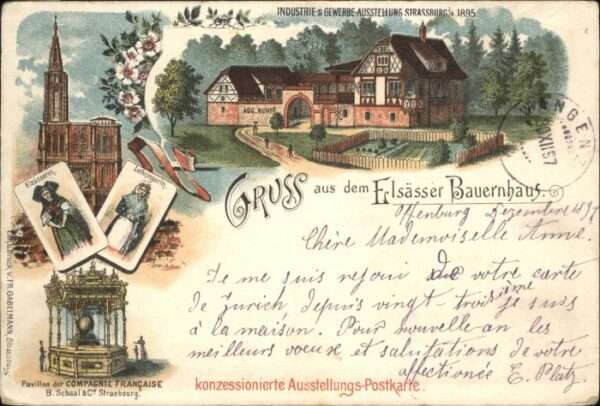 INDUSTRIE & GEWERBE-AUSSTELLUNG STRASSBURG i/E 1895.
Elsässerin.
Lothringerin.
GRUSS aus dem Elsässer Bauernhaus.
Offenburg Dezember 97
Chère Mademoiselle Anne.
Je me suis rejoui de votre carte
de Zurich depuis vingt-troisième je suis
à la maison. Pour nouvelle an les
meilleurs voeux et salutations de votre
affectionée E. Platz
Pavillon der COMPAGNIE FRANÇAISE
B. Schaal & Cie Strasbourg.
konzessionierte Ausstellungs-Postkarte.
v. FR. GABELMANN, Strassburg